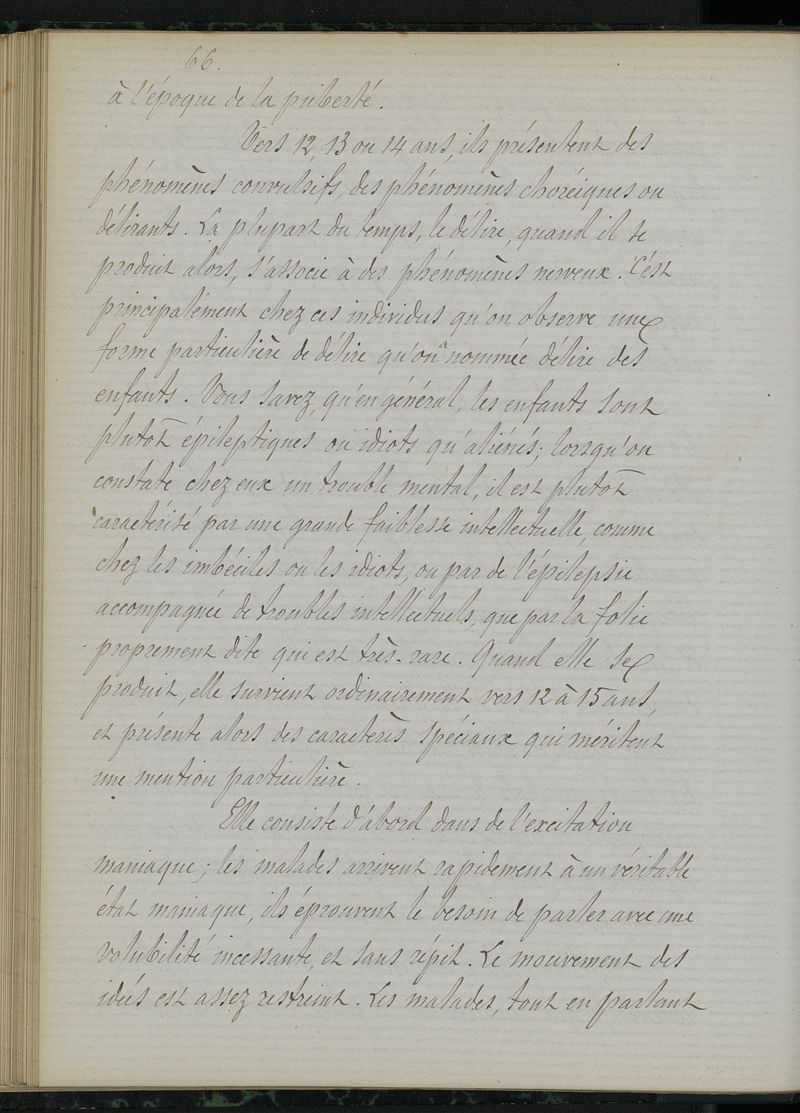 66.
à l'époque de la puberté.
Vers 12, 13 ou 14 ans, ils présentent des
phénomènes convulsifs, des phénomènes choréiques ou
délirants. La plupart du temps, le délire, quand il se
produit alors, s'associe à des phénomènes nerveux. C'est
principalement chez ces individus qu'on observe une
forme particulière de délire qu'on a nommée délire des
enfants. Vous savez, qu'en général, les enfants sont
plutôt épileptiques ou idiots qu'aliénés; lorsqu'on
constate chez eux un trouble mental, il est plutôt
caractérisé par une grande faiblesse intellectuelle, comme
chez les imbéciles ou les idiots, ou par de l'épilepsie
accompagnée de troubles intellectuels, que par la folie
proprement dite qui est très-rare. Quand elle se
produit, elle survient ordinairement vers 12 à 15 ans,
et présente alors des caractères spéciaux qui méritent
une mention particulière.
Elle consiste d'abord dans de l'excitation
maniaque; les malades arrivent rapidement à un véritable
état maniaque, ils éprouvent le besoin de parler avec une
volubilité incessante, et sans répit. Le mouvement des
idées est assez restreint. Les malades, tout en parlant